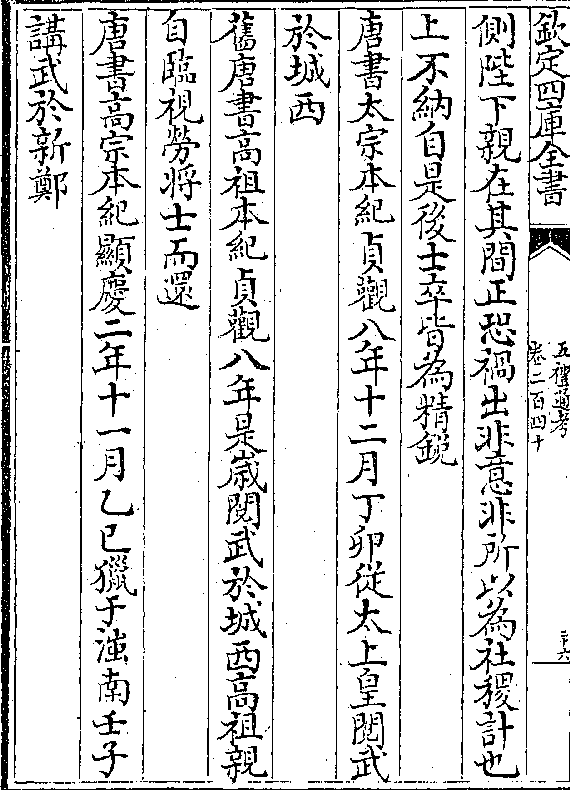 欽定四庫全書
五禮通考
卷二百四十
三十六
側陛下親在其間正恐禍出非意非所以為社稷計也
上不納自是後士卒皆為精鋭
唐書太宗本紀貞觀八年十二月丁卯從太上皇閲武
於城西
舊唐書高祖本紀貞觀八年是歲閲武於城西高祖親
自臨視勞將士而還
唐書高宗本紀顯慶二年十一月乙巳獵于滍南壬子
講武於新鄭